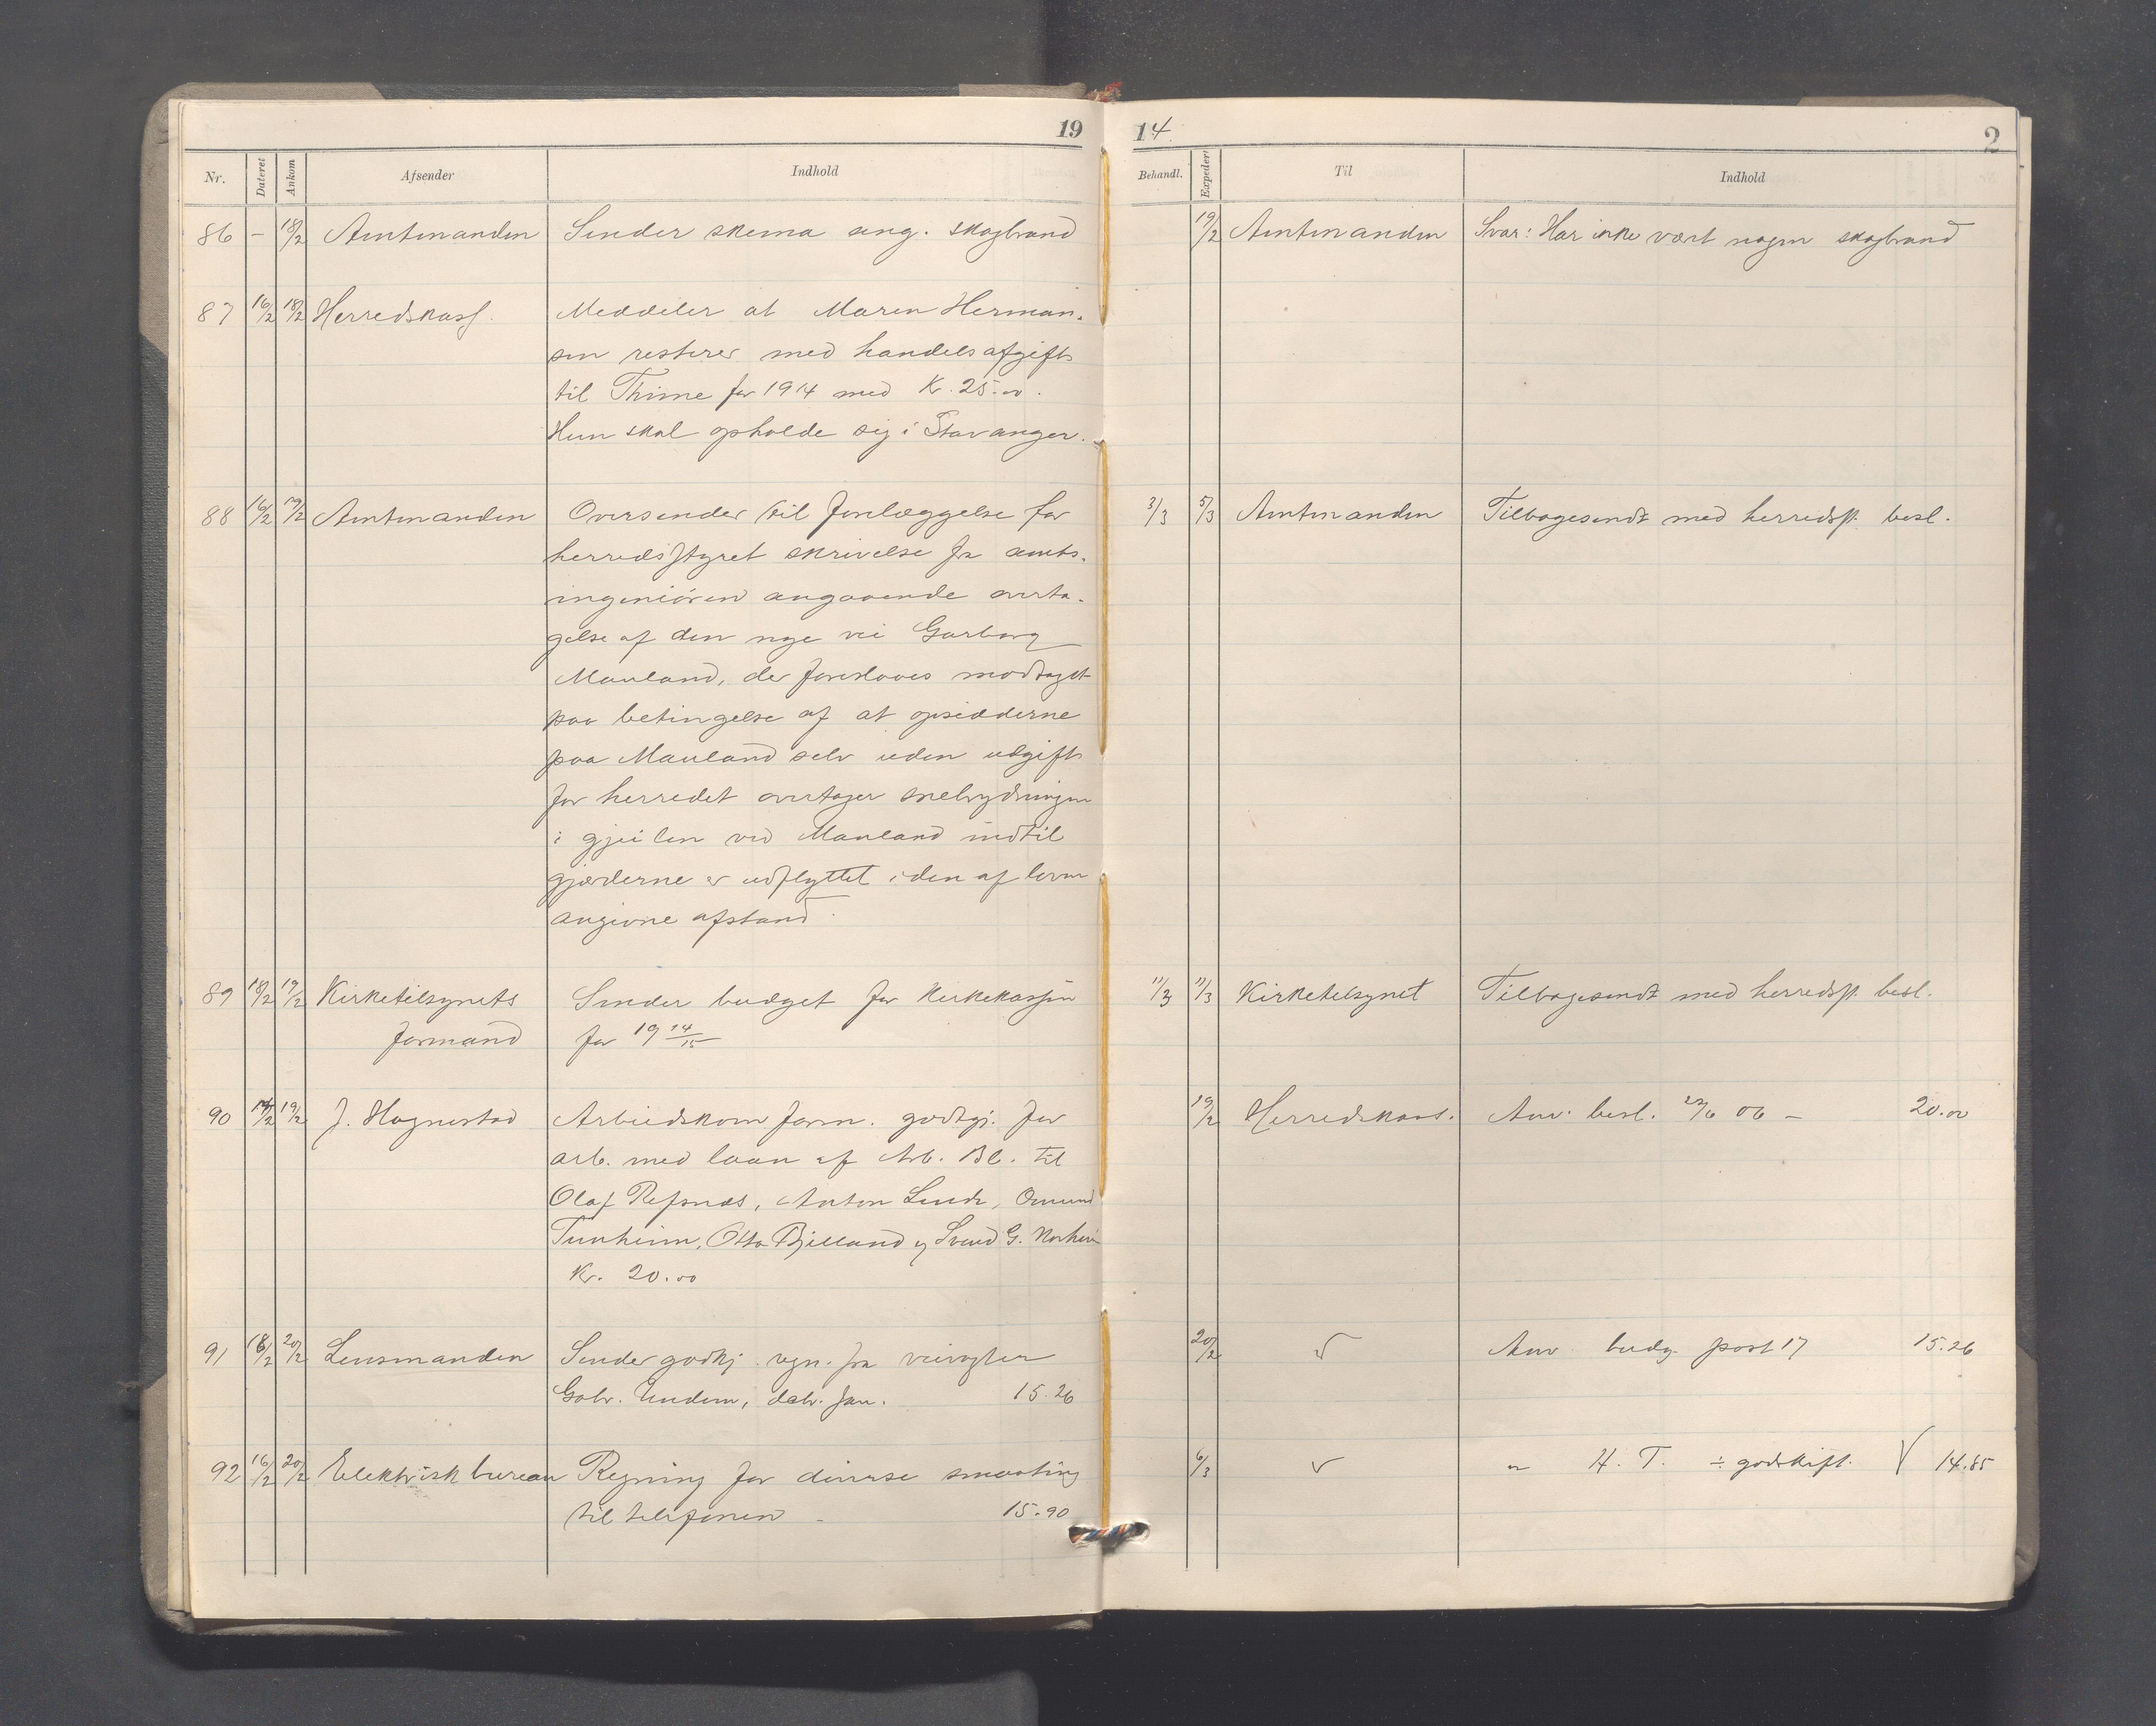 19
Nr. Dateret Ankom Afsender Indhold
86 – 18/2 Amtmanden Sender skema ang. skogbrand
87 16/2 18/2 Herredskass. Meddeler at Maren Herman-
sen resterer med handelsafgift
til Thime for 1914 med Kr. 25.00.
Hun skal opholde sig i Stavanger.
88 16/2 19/2 Amtmanden Oversender til forelæggelse for
herredsstyret skrivelse fra amts-
ingeniøren angaaende overta-
gelse af den nye vei Garborg
Mauland, der foreslaaes modtaget
paa betingelse af at opsidderne
paa Mauland selv uden udgift
for herredet overtager snebrydningen
i gjeilen ved Mauland indtil
gjærderne er udflyttet i den af loven
angivne afstand.
89 18/2 19/2 Kirketilsynets Sender budget for Kirkekassen
formand for 19 14/15
90 19/2 J. Hognestad Arbeidskom form. godtgj. for
arb. med laan af Arb. Bl. til
Olaf Refsnes, Anton Lende, Omund
Tunheim, Otto Bjelland og Svend G. Norheim
Kr. 20.00
91 18/2 20/2 Lensmanden Sender godkj. regn. fra veivogter
Gabr. Undem, dat. jan. 15.26
92 16/2 20/2 Elektrisk bureau Regning for diverse smaating
til telefonen – 15.90
14 2
Behandl. Expeder. Til Indhold
19/2 Amtmanden Svar: Har ikke vært nogen skogbrand
3/3 5/3 Amtmanden Tilbagesendt med herredsst. besl.
11/3 11/3 Kirketilsynet Tilbagesendt med herredsst. besl.
19/2 Herredskass. Anv. besl. 06 – 20.00
20/2 Anv. budg. post 17 15.26
6/3 " H. T. ÷ godskift. 14.85